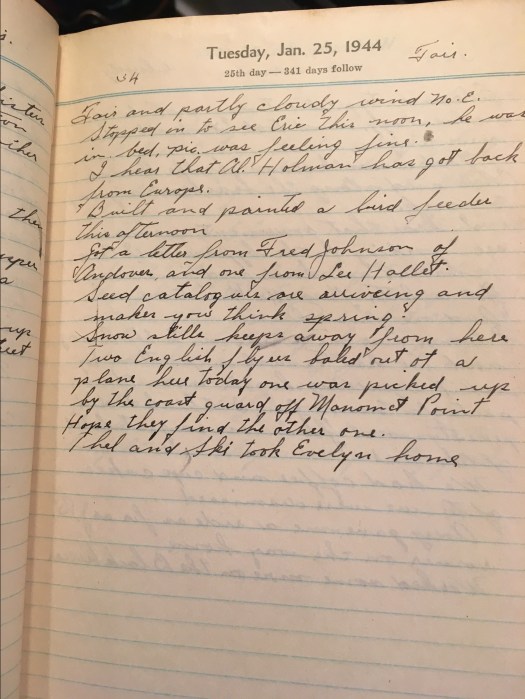 Tuesday, Jan. 25, 1944
Fair.
34
25th day — 341 days follow
Fair and partly cloudy wind No. E.
Stopped in to see Eric this noon, he was
in bed, was feeling fine.
I hear that Al. Holman has got back
from Europe.
Built and painted a bird feeder
this afternoon
Got a letter from Fred Johnson of
Andover, and one from Lee Hallet.
Seed catalogues are arriveing and
makes you think spring.
Snow stills keeps away from here
Two English flyers baled out of a
plane here today one was picked up
by the coast guard off Manomet Point
Hope they find the other one.
Thel and Ski took Evelyn home